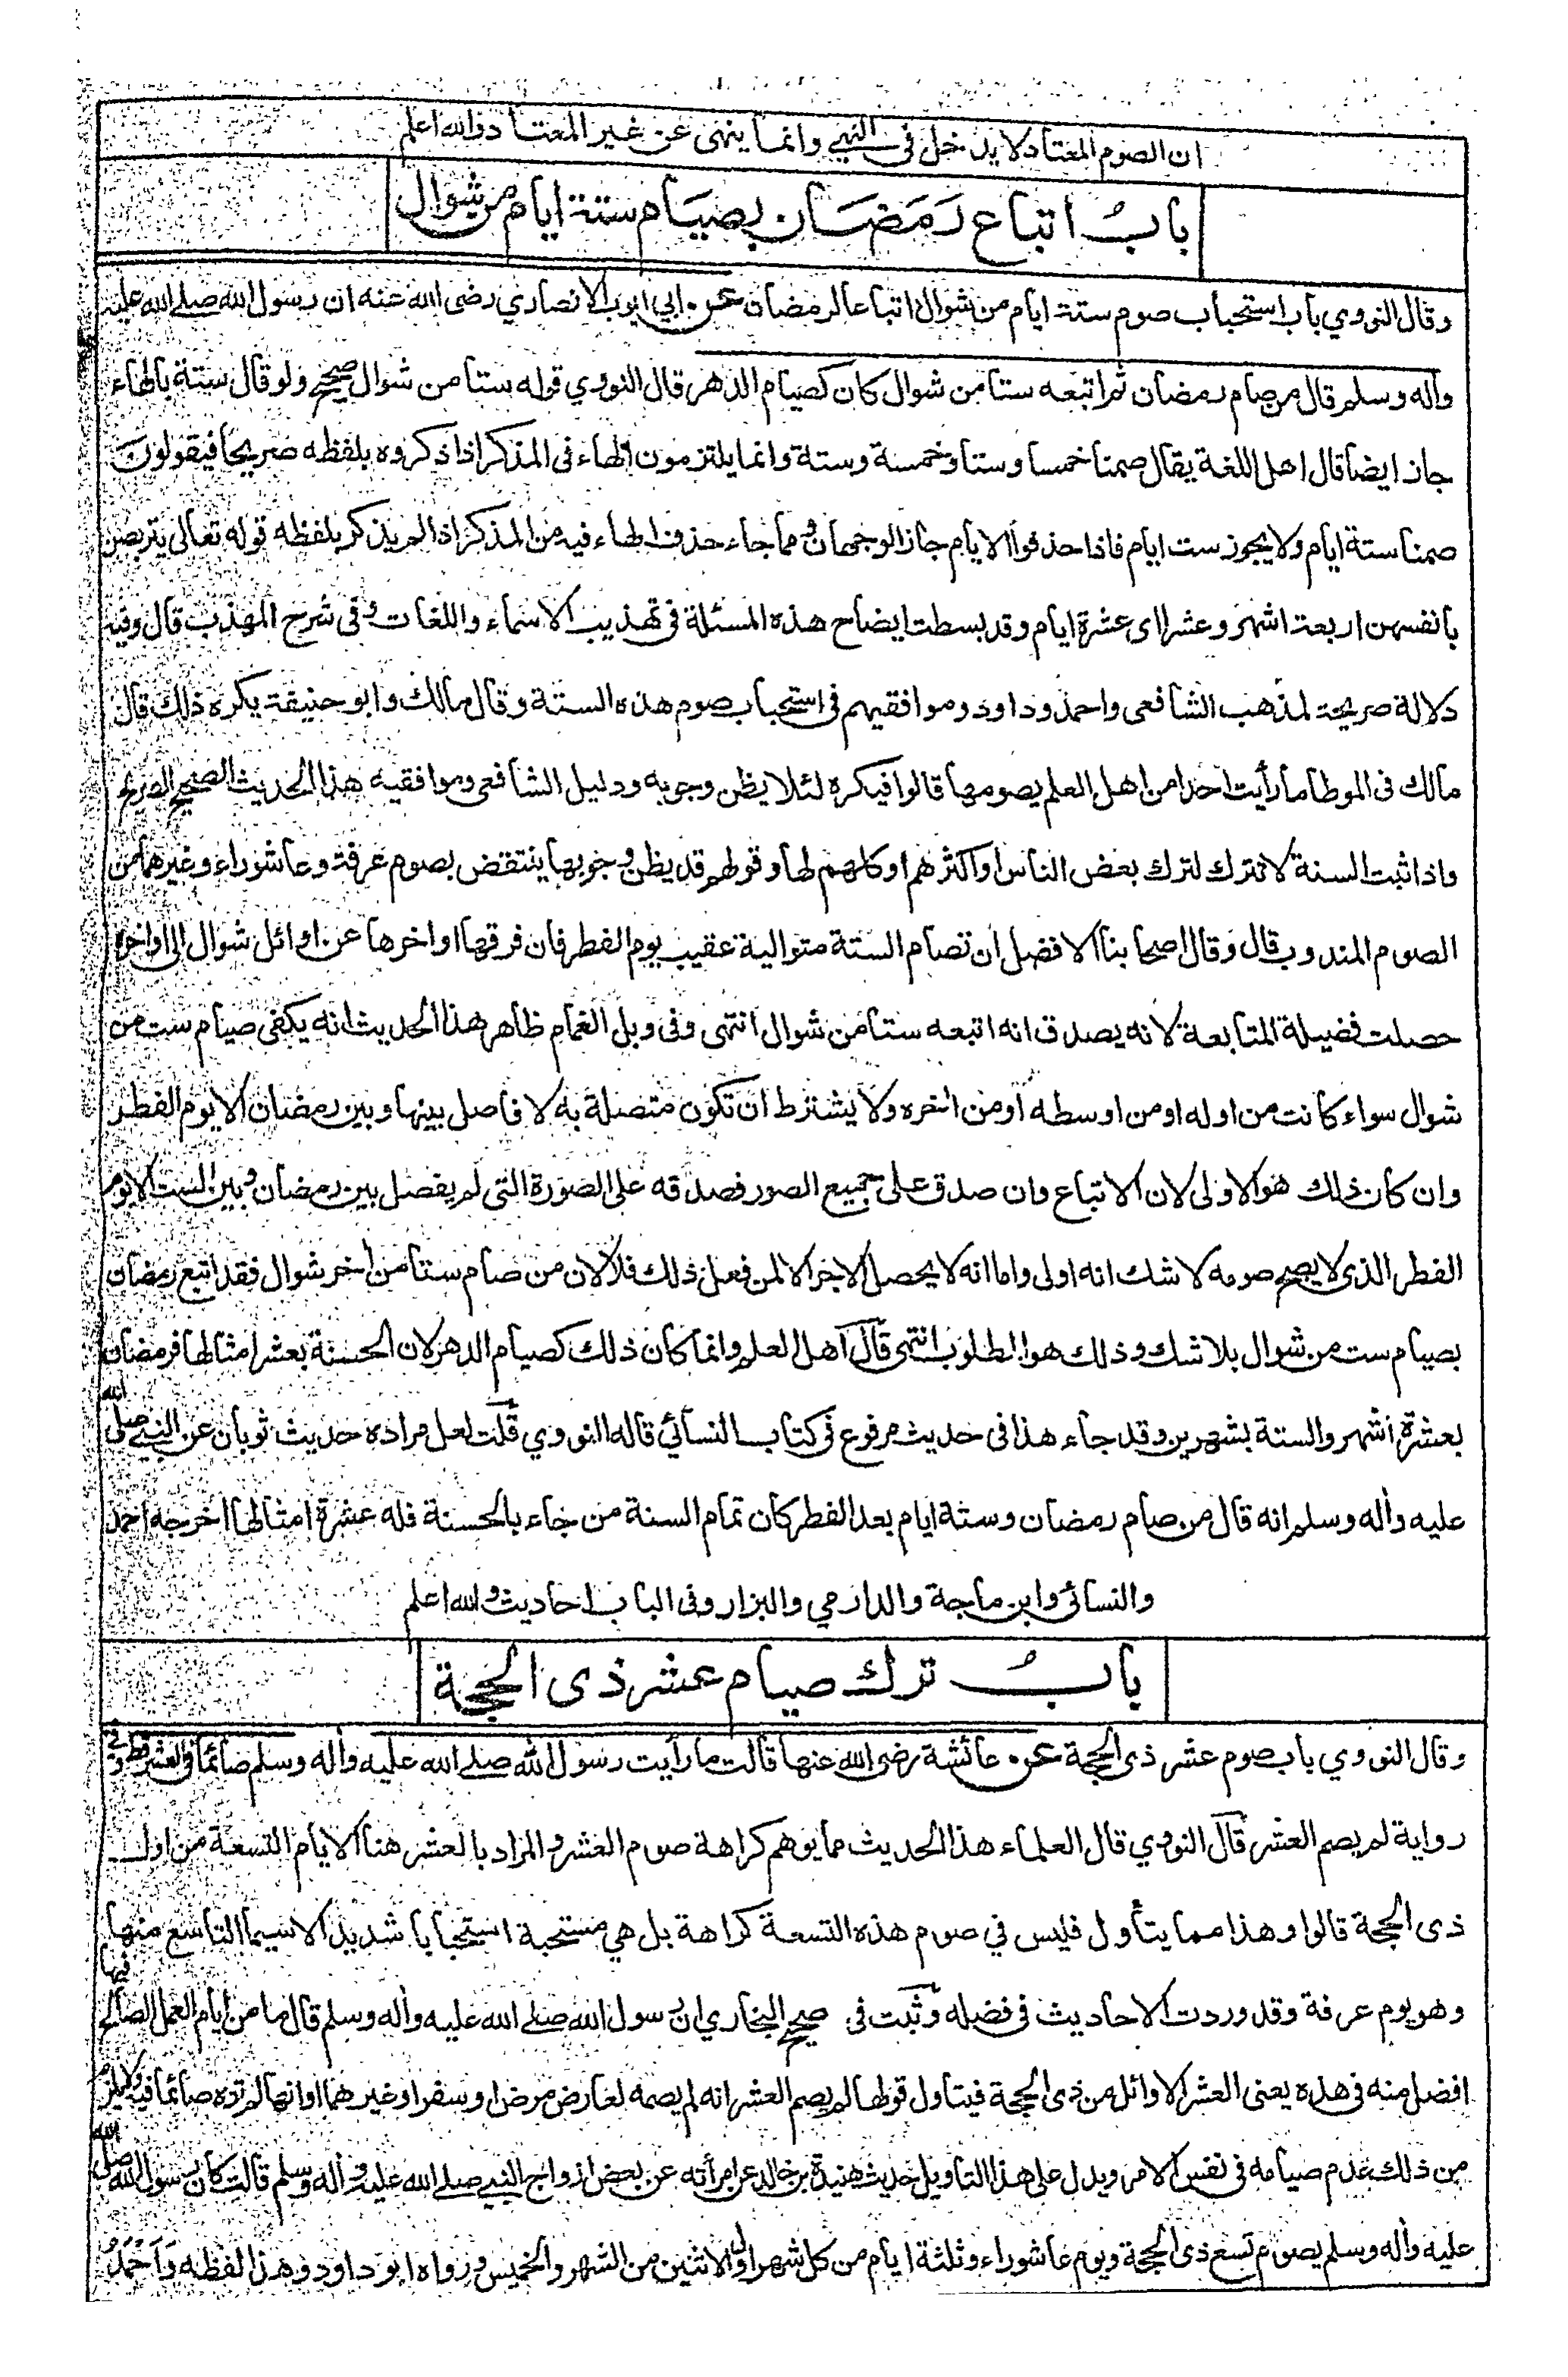 ان الصوم المعتاد لا يدخل فى النهى وانما ينهى عن غير المعتاد والله اعلم
باب اتباع رمضان بصيام ستة ايام من شوال
وقال النووي باب استحباب صوم ستة ايام من شوال اتباعا لرمضان عن ابي ايوب الانصاري رضى الله عنه ان رسول الله صلى الله عليه
واله وسلم قال من صام رمضان ثم اتبعه ستا من شوال كان كصيام الدهر قال النووي قوله ستا من شوال صحيح ولو قال ستة بالهاء
جاز ايضا قال اهل اللغة يقال صمنا خمسا وستا وخمسة وستة وانما يلتزمون الهاء فى المذكر اذا ذكروه بلفظه صريحا فيقولون
صمنا ستة ايام ولا يجوز ست ايام فاذا حذفوا الايام جاز الوجهان ومما جاء حذف الهاء فيه من المذكر اذا لم يذكر بلفظه قوله تعالى يتربصن
بانفسهن اربعة اشهر وعشرا اى عشرة ايام وقد بسطت ايضاح هذه المسئلة فى تهذيب الاسماء واللغات وفى شرح المهذب قال وفيه
دلالة صريحة لمذهب الشافعى واحمد وداود وموافقيهم فى استحباب صوم هذه الستة وقال مالك وابو حنيفة يكره ذلك قال
مالك فى الموطا ما رأيت احدا من اهل العلم يصومها قالوا فيكره لئلا يظن وجوبه ودليل الشافعى وموافقيه هذا الحديث الصحيح الصريح
واذا ثبت السنة لا تترك لترك بعض الناس او اكثرهم او كلهم لها وقولهم قد يظن وجوبها ينتقض بصوم عرفة وعاشوراء وغيرهما من
الصوم المندوب قال وقال اصحابنا الافضل ان تصام الستة متوالية عقيب يوم الفطر فان فرقها او اخرها عن اوائل شوال الى اواخره
حصلت فضيلة المتابعة لانه يصدق انه اتبعه ستا من شوال انتهى وفى وبل الغمام ظاهر هذا الحديث انه يكفى صيام ست من
شوال سواء كانت من اوله او من اوسطه او من اخره ولا يشترط ان تكون متصلة به لا فاصل بينها وبين رمضان الا يوم الفطر
وان كان ذلك هو الاولى لان الاتباع وان صدق على جميع الصور فصدقه على الصورة التى لم يفصل بين رمضان وبين الست الا يوم
الفطر الذى لا يصح صومه لا شك انه اولى واما انه لا يحصل الاجر الا لمن فعل ذلك فلا لان من صام ستا من اخر شوال فقد اتبع رمضان
بصيام ست من شوال بلا شك وذلك هو المطلوب انتهى قال اهل العلم وانما كان ذلك كصيام الدهر لان الحسنة بعشر امثالها فرمضان
بعشرة اشهر والستة بشهرين وقد جاء هذا فى حديث مرفوع فى كتاب النسائي قاله النووي قلت لعل مراده حديث ثوبان عن النبى صلى الله
عليه واله وسلم انه قال من صام رمضان وستة ايام بعد الفطر كان تمام السنة من جاء بالحسنة فله عشرة امثالها اخرجه احمد
والنسائى وابن ماجة والدارمي والبزار وفى الباب احاديث والله اعلم
باب ترك صيام عشر ذى الحجة
وقال النووي باب صوم عشر ذى الحجة عن عائشة رضى الله عنها قالت ما رأيت رسول الله صلى الله عليه واله وسلم صائما فى العشر قط وفى
رواية لم يصم العشر قال النووي قال العلماء هذا الحديث مما يوهم كراهة صوم العشر والمراد بالعشر هنا الايام التسعة من اول
ذى الحجة قالوا وهذا مما يتأول فليس في صوم هذه التسعة كراهة بل هي مستحبة استحبابا شديدا لاسيما التاسع منها
وهو يوم عرفة وقد وردت الاحاديث فى فضيله وثبت فى صحيح البخاري ان رسول الله صلى الله عليه واله وسلم قال ما من ايام العمل الصالح فيها
افضل منه فى هذه يعنى العشر الاوائل من ذى الحجة فيتاول قولها لم يصم العشر انه لم يصمه لعارض مرض او سفر او غيرهما او انها لم تره صائما فيه ولا يلزم
من ذلك عدم صيامه فى نفس الامر ويدل على هذا التاويل حديث هنيدة بن خالد عن امرأته عن بعض ازواج النبي صلى الله عليه واله وسلم قالت كان رسول الله صلى الله
عليه واله وسلم يصوم تسع ذى الحجة ويوم عاشوراء وثلثة ايام من كل شهر اول الاثنين من الشهر والخميس ورواه ابو داود وهذا لفظه واحمد